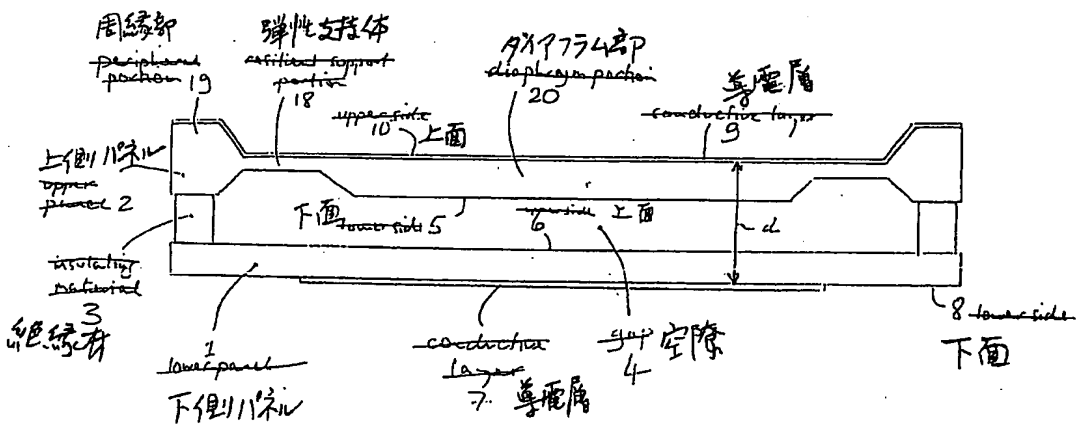 周縁部
peripheral
portion 19
弾性支持体
resilient support
portion
18
ダイアフラム部
diaphragm portion
20
導電層
conductive layer
9
upper side
10 上面
上側パネル
upper
panel 2
下面 lower side 5
upper side 上面
6
d
insulating
material
3
絶縁材
1
lower panel
下側パネル
conductive
layer
7 導電層
gap 空隙
4
8 lower side
下面